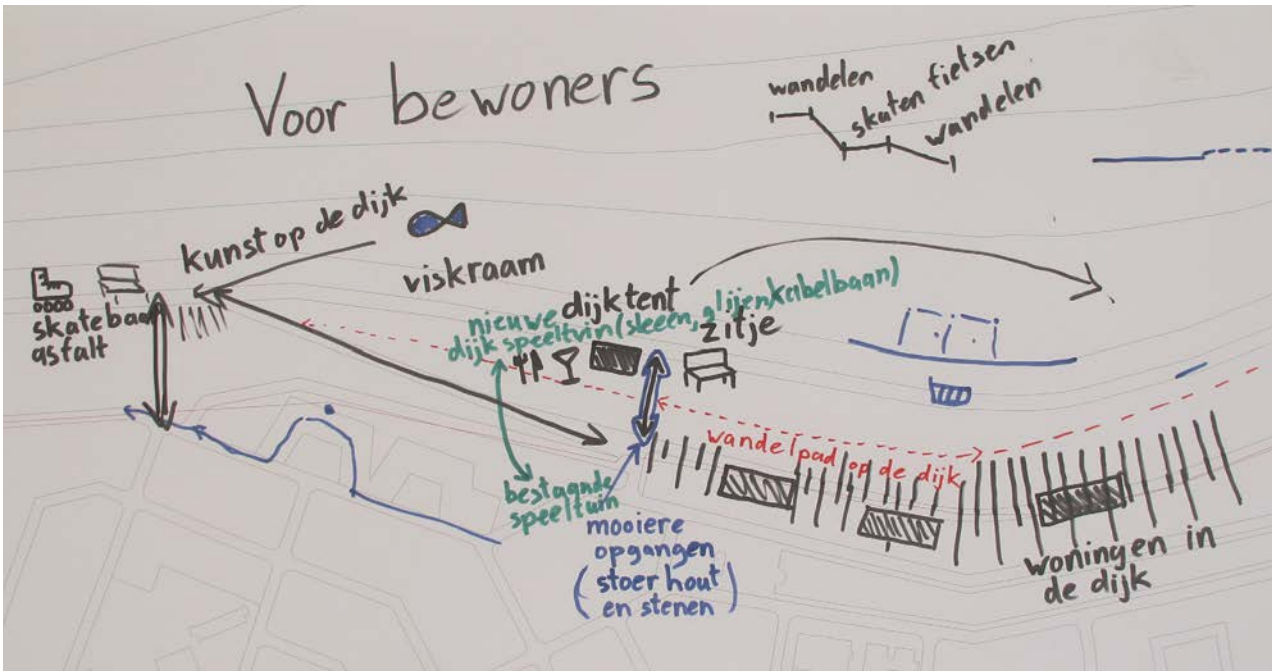 Voor bewoners
wandelen
skaten fietsen
wandelen
kunst op de dijk
viskraam
skatebaan
asfalt
dijktent
zitje
nieuwe
dijkspeeltuin (sleeën, glijen, kabelbaan)
wandelpad op de dijk
bestaande
speeltuin
mooiere
opgangen
(stoer hout
en stenen)
woningen in
de dijk